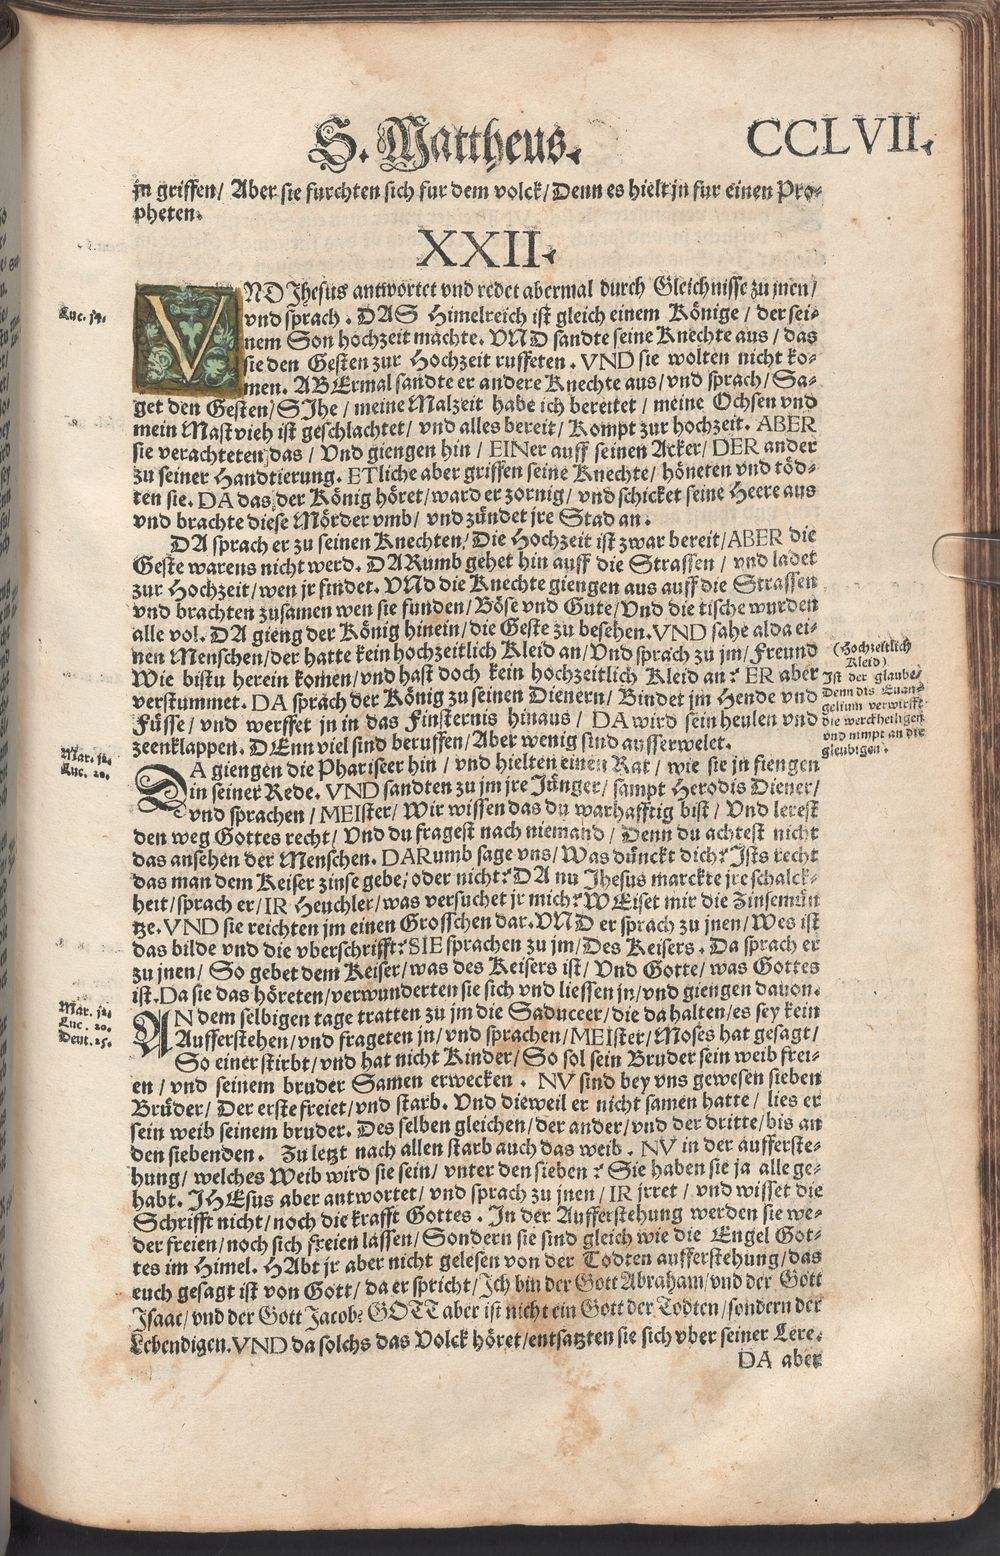 S. Mattheus.
CCLVII.
jn griffen/ Aber sie furchten sich fur dem volck/ Denn es hielt jn fur einen Pro-
pheten.
XXII.
Luc. 14.
VND Jhesus antwortet vnd redet abermal durch Gleichnisse zu jnen/
vnd sprach. DAS Himelreich ist gleich einem Könige/ der sei-
nem Son hochzeit machte. VND sandte seine Knechte aus/ das
sie den Gesten zur Hochzeit ruffeten. VND sie wolten nicht ko-
men. ABErmal sandte er andere Knechte aus/ vnd sprach/ Sa-
get den Gesten/ SIhe/ meine Malzeit habe ich bereitet/ meine Ochsen vnd
mein Mastvieh ist geschlachtet/ vnd alles bereit/ Kompt zur hochzeit. ABER
sie verachteten das/ Vnd giengen hin/ EINer auff seinen Acker/ DER ander
zu seiner Handtierung. ETliche aber griffen seine Knechte/ höneten vnd töd-
ten sie. DA das der König höret/ ward er zornig/ vnd schicket seine Heere aus
vnd brachte diese Mörder vmb/ vnd zündet jre Stad an.
DA sprach er zu seinen Knechten/ Die Hochzeit ist zwar bereit/ ABER die
Geste warens nicht werd. DARumb gehet hin auff die Strassen/ vnd ladet
zur Hochzeit/ wen jr findet. VNd die Knechte giengen aus auff die Strassen
vnd brachten zusamen wen sie funden/ Böse vnd Gute/ Vnd die tische wurden
alle vol. DA gieng der König hinein/ die Geste zu besehen. VND sahe alda ei-
nen Menschen/ der hatte kein hochzeitlich Kleid an/ Vnd sprach zu jm/ Freund
Wie bistu herein komen/ vnd hast doch kein hochzeitlich Kleid an? ER aber
verstummet. DA sprach der König zu seinen Dienern/ Bindet jm Hende vnd
Füsse/ vnd werffet jn in das Finsternis hinaus/ DA wird sein heulen vnd
zeenklappen. DEnn viel sind beruffen/ Aber wenig sind ausserwelet.
(Hochzeitlich
Kleid)
Ist der glaube/
Denn dis Euan-
gelium verwirfft
die werckheiligen
vnd nimpt an die
gleubigen.
Mar. 12.
Luc. 20.
DA giengen die Phariseer hin/ vnd hielten einen Rat/ wie sie jn fiengen
in seiner Rede. VND sandten zu jm jre Jünger/ sampt Herodis Diener/
vnd sprachen/ MEIster/ Wir wissen das du warhafftig bist/ Vnd lerest
den weg Gottes recht/ Vnd du fragest nach niemand/ Denn du achtest nicht
das ansehen der Menschen. DARumb sage vns/ Was dünckt dich? Ists recht
das man dem Keiser zinse gebe/ oder nicht? DA nu Jhesus marckte jre schalck-
heit/ sprach er/ IR Heuchler/ was versuchet jr mich? WEiset mir die Zinsemün
tze. VND sie reichten jm einen Grosschen dar. VND er sprach zu jnen/ Wes ist
das bilde vnd die vberschrifft? SIE sprachen zu jm/ Des Keisers. Da sprach er
zu jnen/ So gebet dem Keiser/ was des Keisers ist/ Vnd Gotte/ was Gottes
ist. Da sie das höreten/ verwunderten sie sich vnd liessen jn/ vnd giengen dauon.
Mar. 12.
Luc. 20.
Deut. 25.
AN dem selbigen tage tratten zu jm die Saduceer/ die da halten/ es sey kein
Aufferstehen/ vnd frageten jn/ vnd sprachen/ MEIster/ Moses hat gesagt/
So einer stirbt/ vnd hat nicht Kinder/ So sol sein Bruder sein weib frei-
en/ vnd seinem bruder Samen erwecken. NV sind bey vns gewesen sieben
Brüder/ Der erste freiet/ vnd starb. Vnd dieweil er nicht samen hatte/ lies er
sein weib seinem bruder. Des selben gleichen/ der ander/ vnd der dritte/ bis an
den siebenden. Zu letzt nach allen starb auch das weib. NV in der aufferste-
hung/ welches Weib wird sie sein/ vnter den sieben? Sie haben sie ja alle ge-
habt. JHEsus aber antwortet/ vnd sprach zu jnen/ IR jrret/ vnd wisset die
Schrifft nicht/ noch die krafft Gottes. In der Aufferstehung werden sie we-
der freien/ noch sich freien lassen/ Sondern sie sind gleich wie die Engel Got-
tes im Himel. HAbt jr aber nicht gelesen von der Todten aufferstehung/ das
euch gesagt ist von Gott/ da er spricht/ Ich bin der Gott Abraham/ vnd der Gott
Isaac/ vnd der Gott Jacob? GOTT aber ist nicht ein Gott der Todten/ sondern der
Lebendigen. VND da solchs das Volck höret/ entsatzten sie sich vber seiner Lere.
DA aber